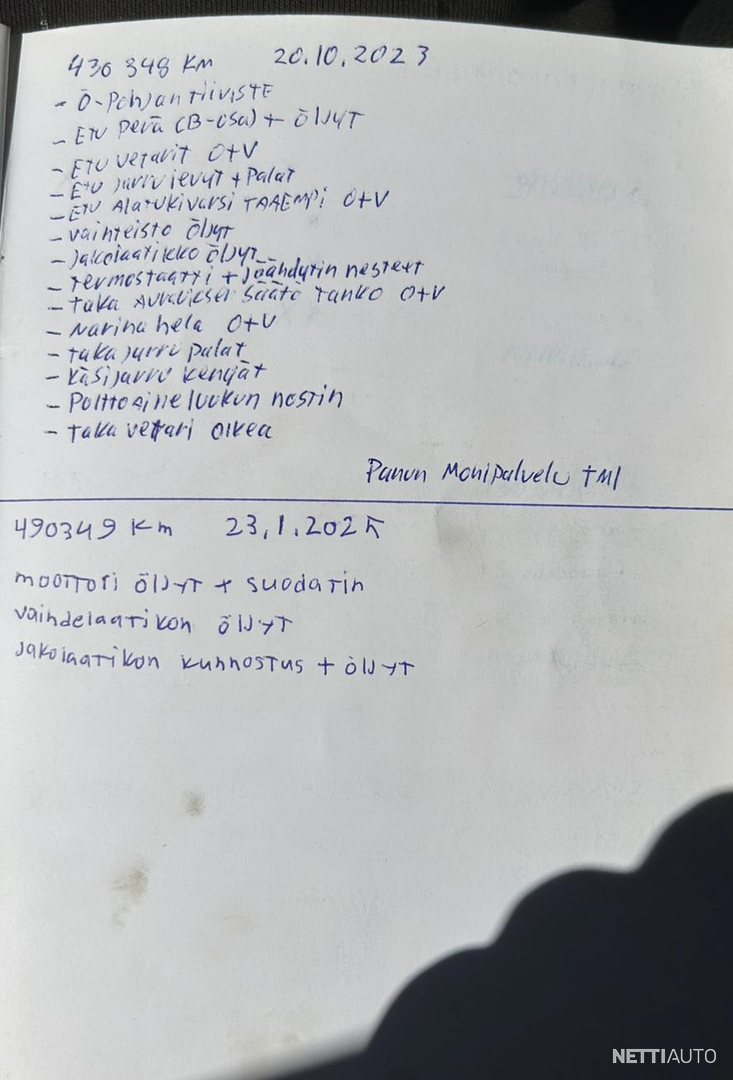 430 348 KM 20.10.2023
- Ö-Pohjan tiiviste
- Etu perä (B-osa) + öljyt
- Etu vetarit O+V
- Etu jarrulevyt + Palat
- Etu Alatukivarsi TAAEMPI O+V
- vaihteisto öljyt
- Jakolaatikko öljyt
- Termostaatti + Jäähdytin nesteet
- Taka Auraukser Säätö Tanko O+V
- Narina hela O+V
- taka jarru palat
- Käsijarru kengät
- Polttoaine luukun nostin
- Taka vetari oikea
Panun Monipalvelu TMI
490349 Km 23.1.2025
moottori öljyt + suodatin
vaihdelaatikon öljyt
Jakolaatikon kunnostus + öljyt
NETTIAUTO